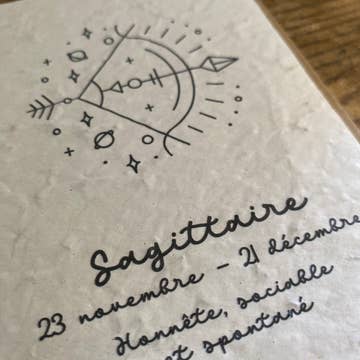 Sagittaire
23 novembre - 21 décembre
Honnête, sociable
et spontané